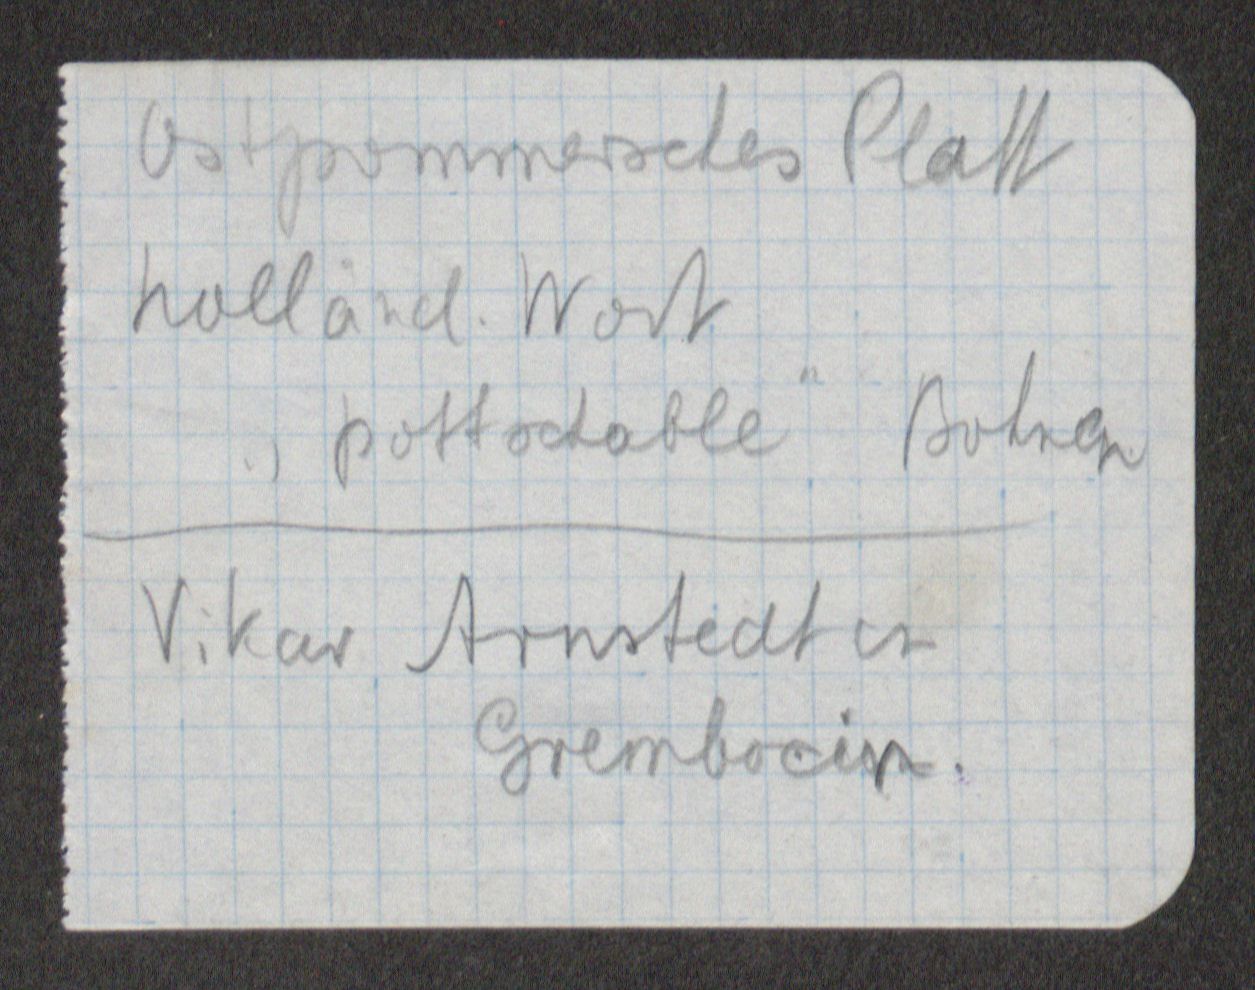 Ostpommersches Platt
holländ. Wort
„pottschable" Bohnen
Vikar Arnstedt in
Grembocin.